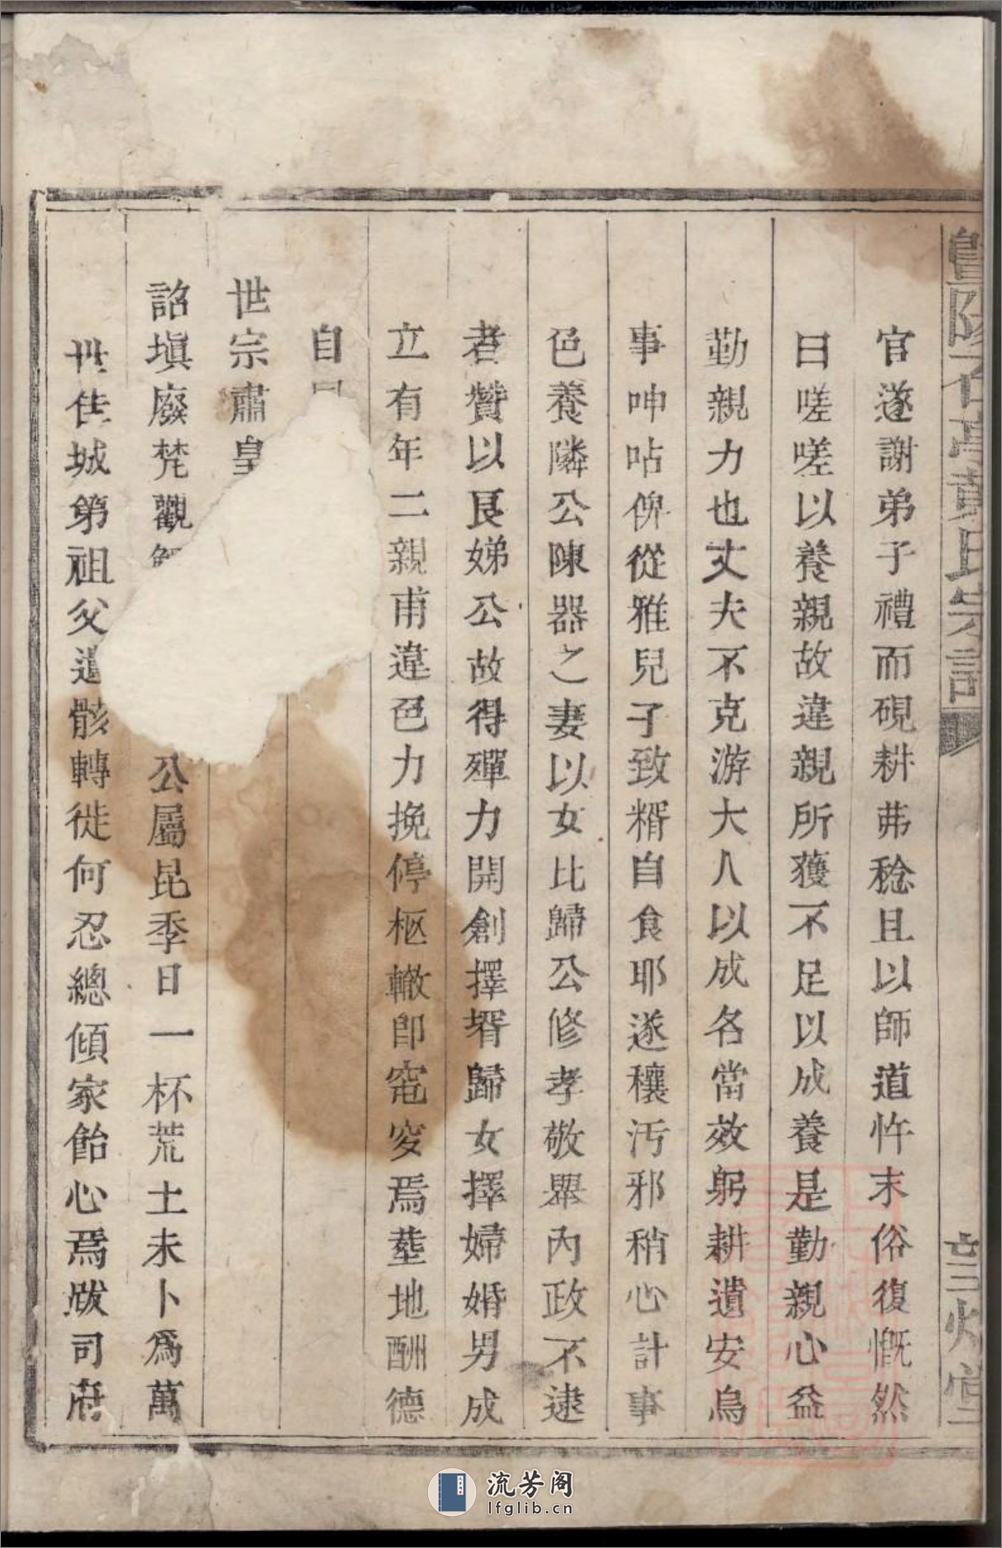 暨陽 氏宗譜
堂
官遂謝弟子禮而硯耕弗稔且以師道忤末俗復慨然
曰嗟嗟以養親故違親所獲不足以成養是勤親心益
勤親力也丈夫不克游大人以成名當效躬耕遺安烏
事呻呫俾從雅兒子致糈自食耶遂穰汚邪稍心計事
色養隣公陳器之妻以女比歸公修孝敬舉內政不逮
者贊以良娣公故得殫力開創擇壻歸女擇婦婚男成
立有年二親甫違色力挽停柩轍卽窀穸焉塟地酬德
自
世宗肅皇
詔塡廢梵觀 公屬昆季日一杯荒土未卜爲萬
世佳城第祖父遺骸轉徙何忍總傾家飴心焉跋司府
流芳阁
lfglib.cn